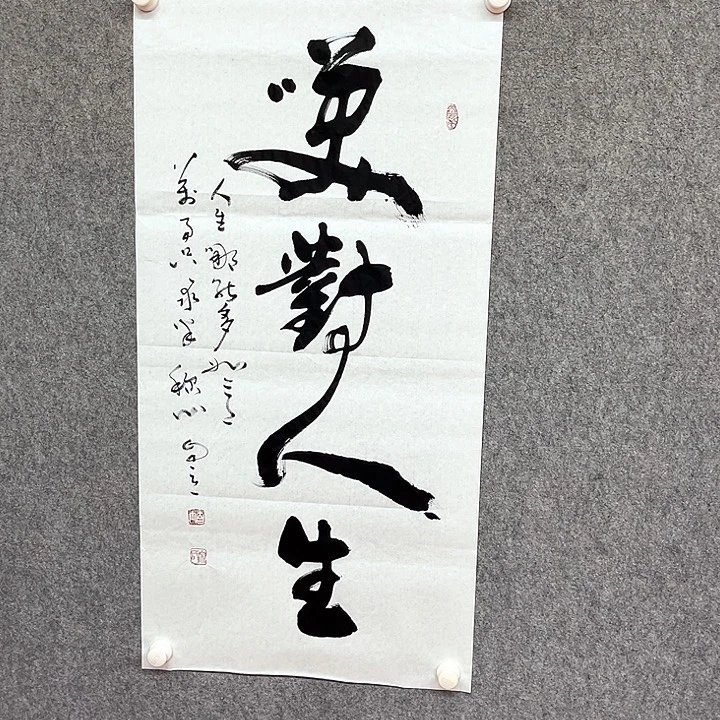 笑對人生
人生哪能多如意
萬事只求半稱心